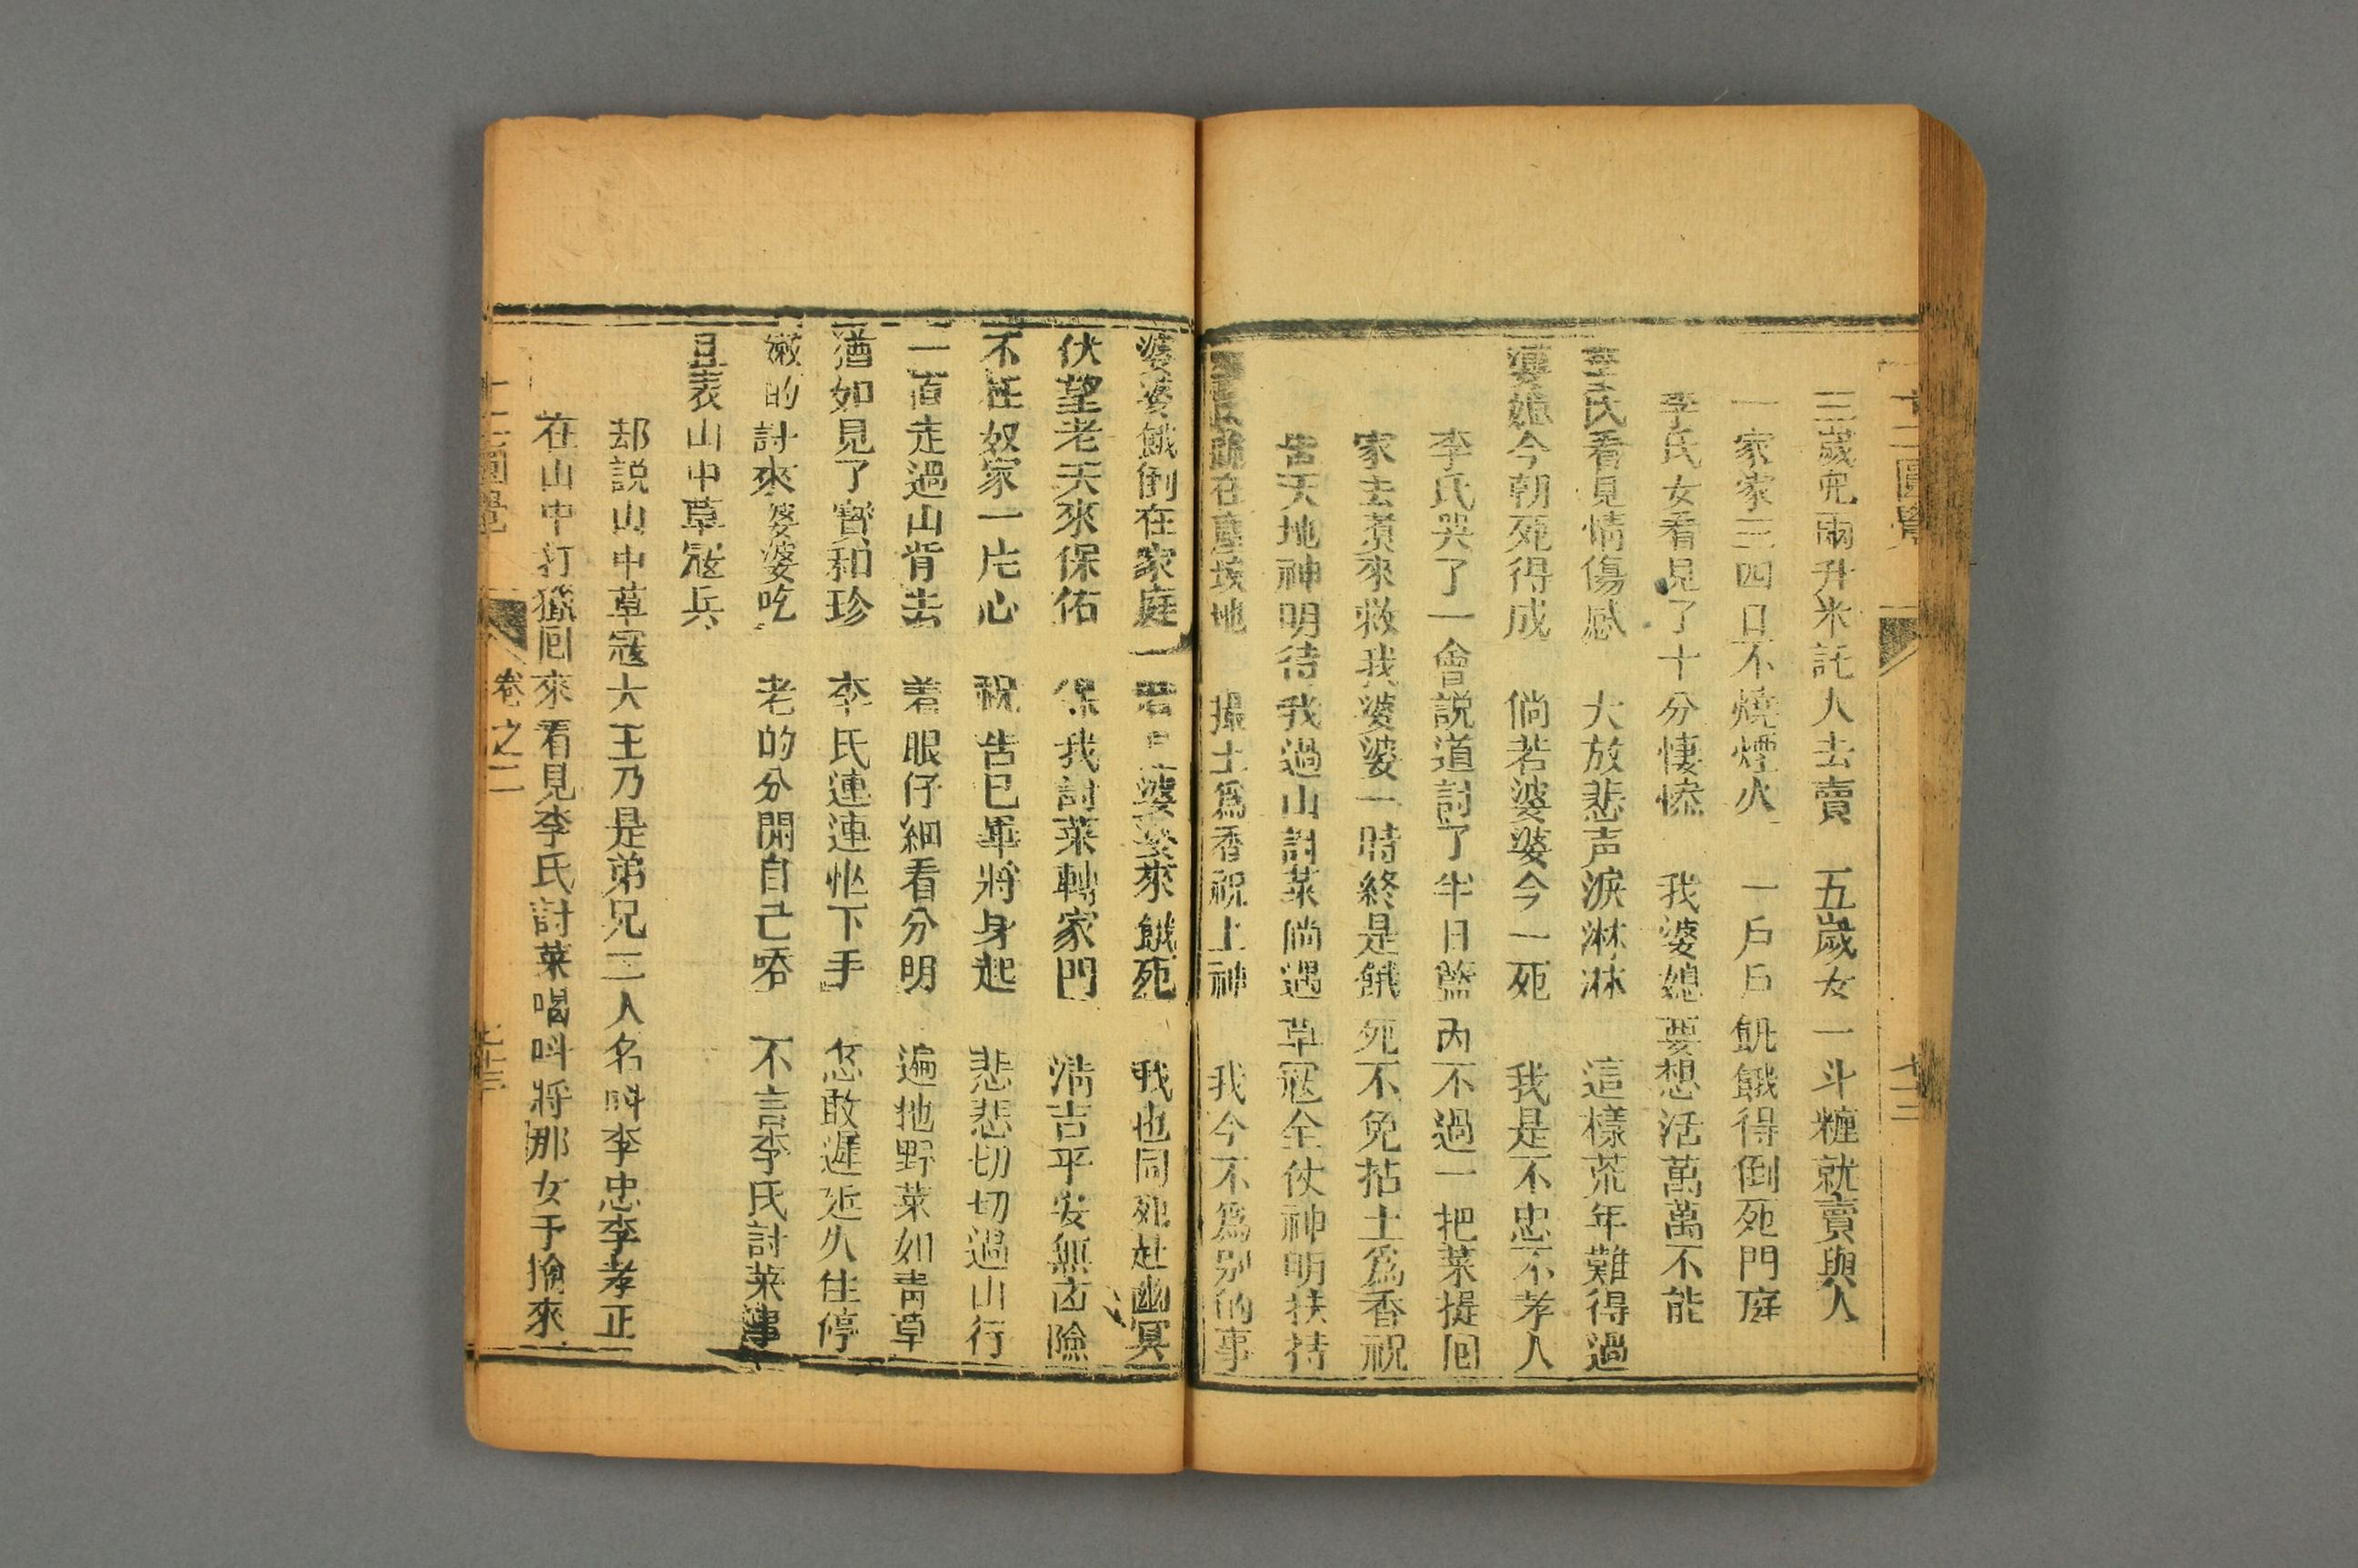 十二圓覺
七十二
三歲兜兩升米託人去賣 五歲女一斗糠就賣與人
一家家三四口不燒煙火 一戶戶飢餓得倒死門庭
李氏女看見了十分悽慘 我婆媳要想活萬萬不能
李氏看見情傷感 大放悲声淚淋淋 這樣荒年難得過
婆媳今朝死得成 倘若婆婆今一死 我是不忠不孝人
李氏哭了一會説道討了半日籃內不過一把菜提囘
家去煑來救我婆婆一時終是餓死不免拈土為香祝
告天地神明待我過山討菜倘遇草寇全仗神明扶持
在塵埃地 撮土為香祝上神 我今不為別的事
婆婆餓倒在家庭 若 婆婆來餓死 我也同死赴幽冥
伏望老天來保佑 保我討菜轉家門 清吉平安無凶險
不枉奴家一片心 祝告已畢將身起 悲悲切切過山行
一直走過山背去 着眼仔細看分明 遍地野菜如青草
猶如見了寶和珍 李氏連連坐下手 怎敢遲延久住停
嫩的討來婆婆吃 老的分開自己嘗 不言李氏討菜事
且表山中草寇兵
却説山中草寇大王乃是弟兄二人名呌李忠李孝正
在山中打獵囘來看見李氏討菜喝呌將那女子擒來
十二圓覺
卷之二
七十三